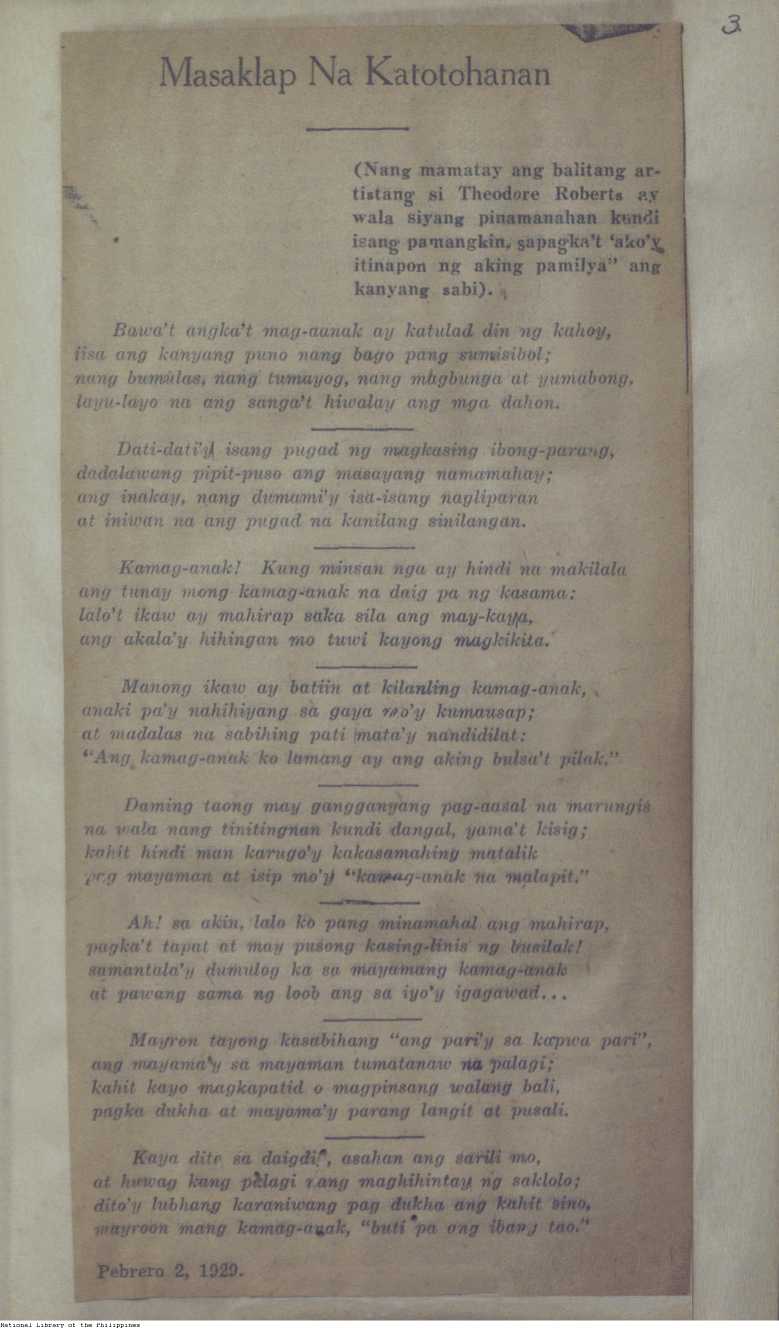 3.
Masaklap Na Katotohanan
(Nang mamatay ang balitang ar-
tistang si Theodore Roberts ay
wala siyang pinamanahan kundi
isang pamangkin, sapagka't 'ako'y
itinapon ng aking pamilya" ang
kanyang sabi).
Bawa't angka't mag-aanak ay katulad din ng kahoy,
iisa ang kanyang puno nang bago pang sumisibol;
nang bumulas, nang tumayog, nang magbunga at yumabong,
layu-layo na ang sanga't hiwalay ang mga dahon.
Dati-dati'y isang pugad ng magkasing ibong-parang,
dadalawang pipit-puso ang masayang namamahay;
ang inakay, nang dumami'y isa-isang nagliparan
at iniwan na ang pugad na kanilang sinilangan.
Kamag-anak! Kung minsan nga ay hindi na makilala
ang tunay mong kamag-anak na daig pa ng kasama:
lalo't ikaw ay mahirap saka sila ang may-kaya,
ang akala'y hihingan mo tuwi kayong magkikita.
Manong ikaw ay batiin at kilanling kamag-anak,
anaki pa'y nahihiyang sa gaya mo'y kumausap;
at madalas na sabihing pati mata'y nandidilat:
"Ang kamag-anak ko lamang ay ang aking bulsa't pilak."
Daming taong may gangganyang pag-aasal na marungis
na wala nang tinitingnan kundi dangal, yama't kisig;
kahit hindi man karugo'y kakasamahing matalik
pag mayaman at isip mo'y "kamag-anak na malapit."
Ah! sa akin, lalo ko pang minamahal ang mahirap,
pagka't tapat at may pusong kasing-linis ng busilak!
samantala'y dumulog ka sa mayamang kamag-anak
at pawang sama ng loob ang sa iyo'y igagawad...
Mayron tayong kasabihang "ang pari'y sa kapwa pari",
ang mayama'y sa mayaman tumatanaw na palagi;
kahit kayo magkapatid o magpinsang walang bali,
pagka dukha at mayama'y parang langit at pusali.
Kaya dito sa daigdig, asahan ang sarili mo,
at huwag kang palagi nang maghihintay ng saklolo;
dito'y lubhang karaniwang pag dukha ang kahit sino,
mayroon mang kamag-anak, "buti pa ang ibang tao."
Pebrero 2, 1929.
National Library of the Philippines